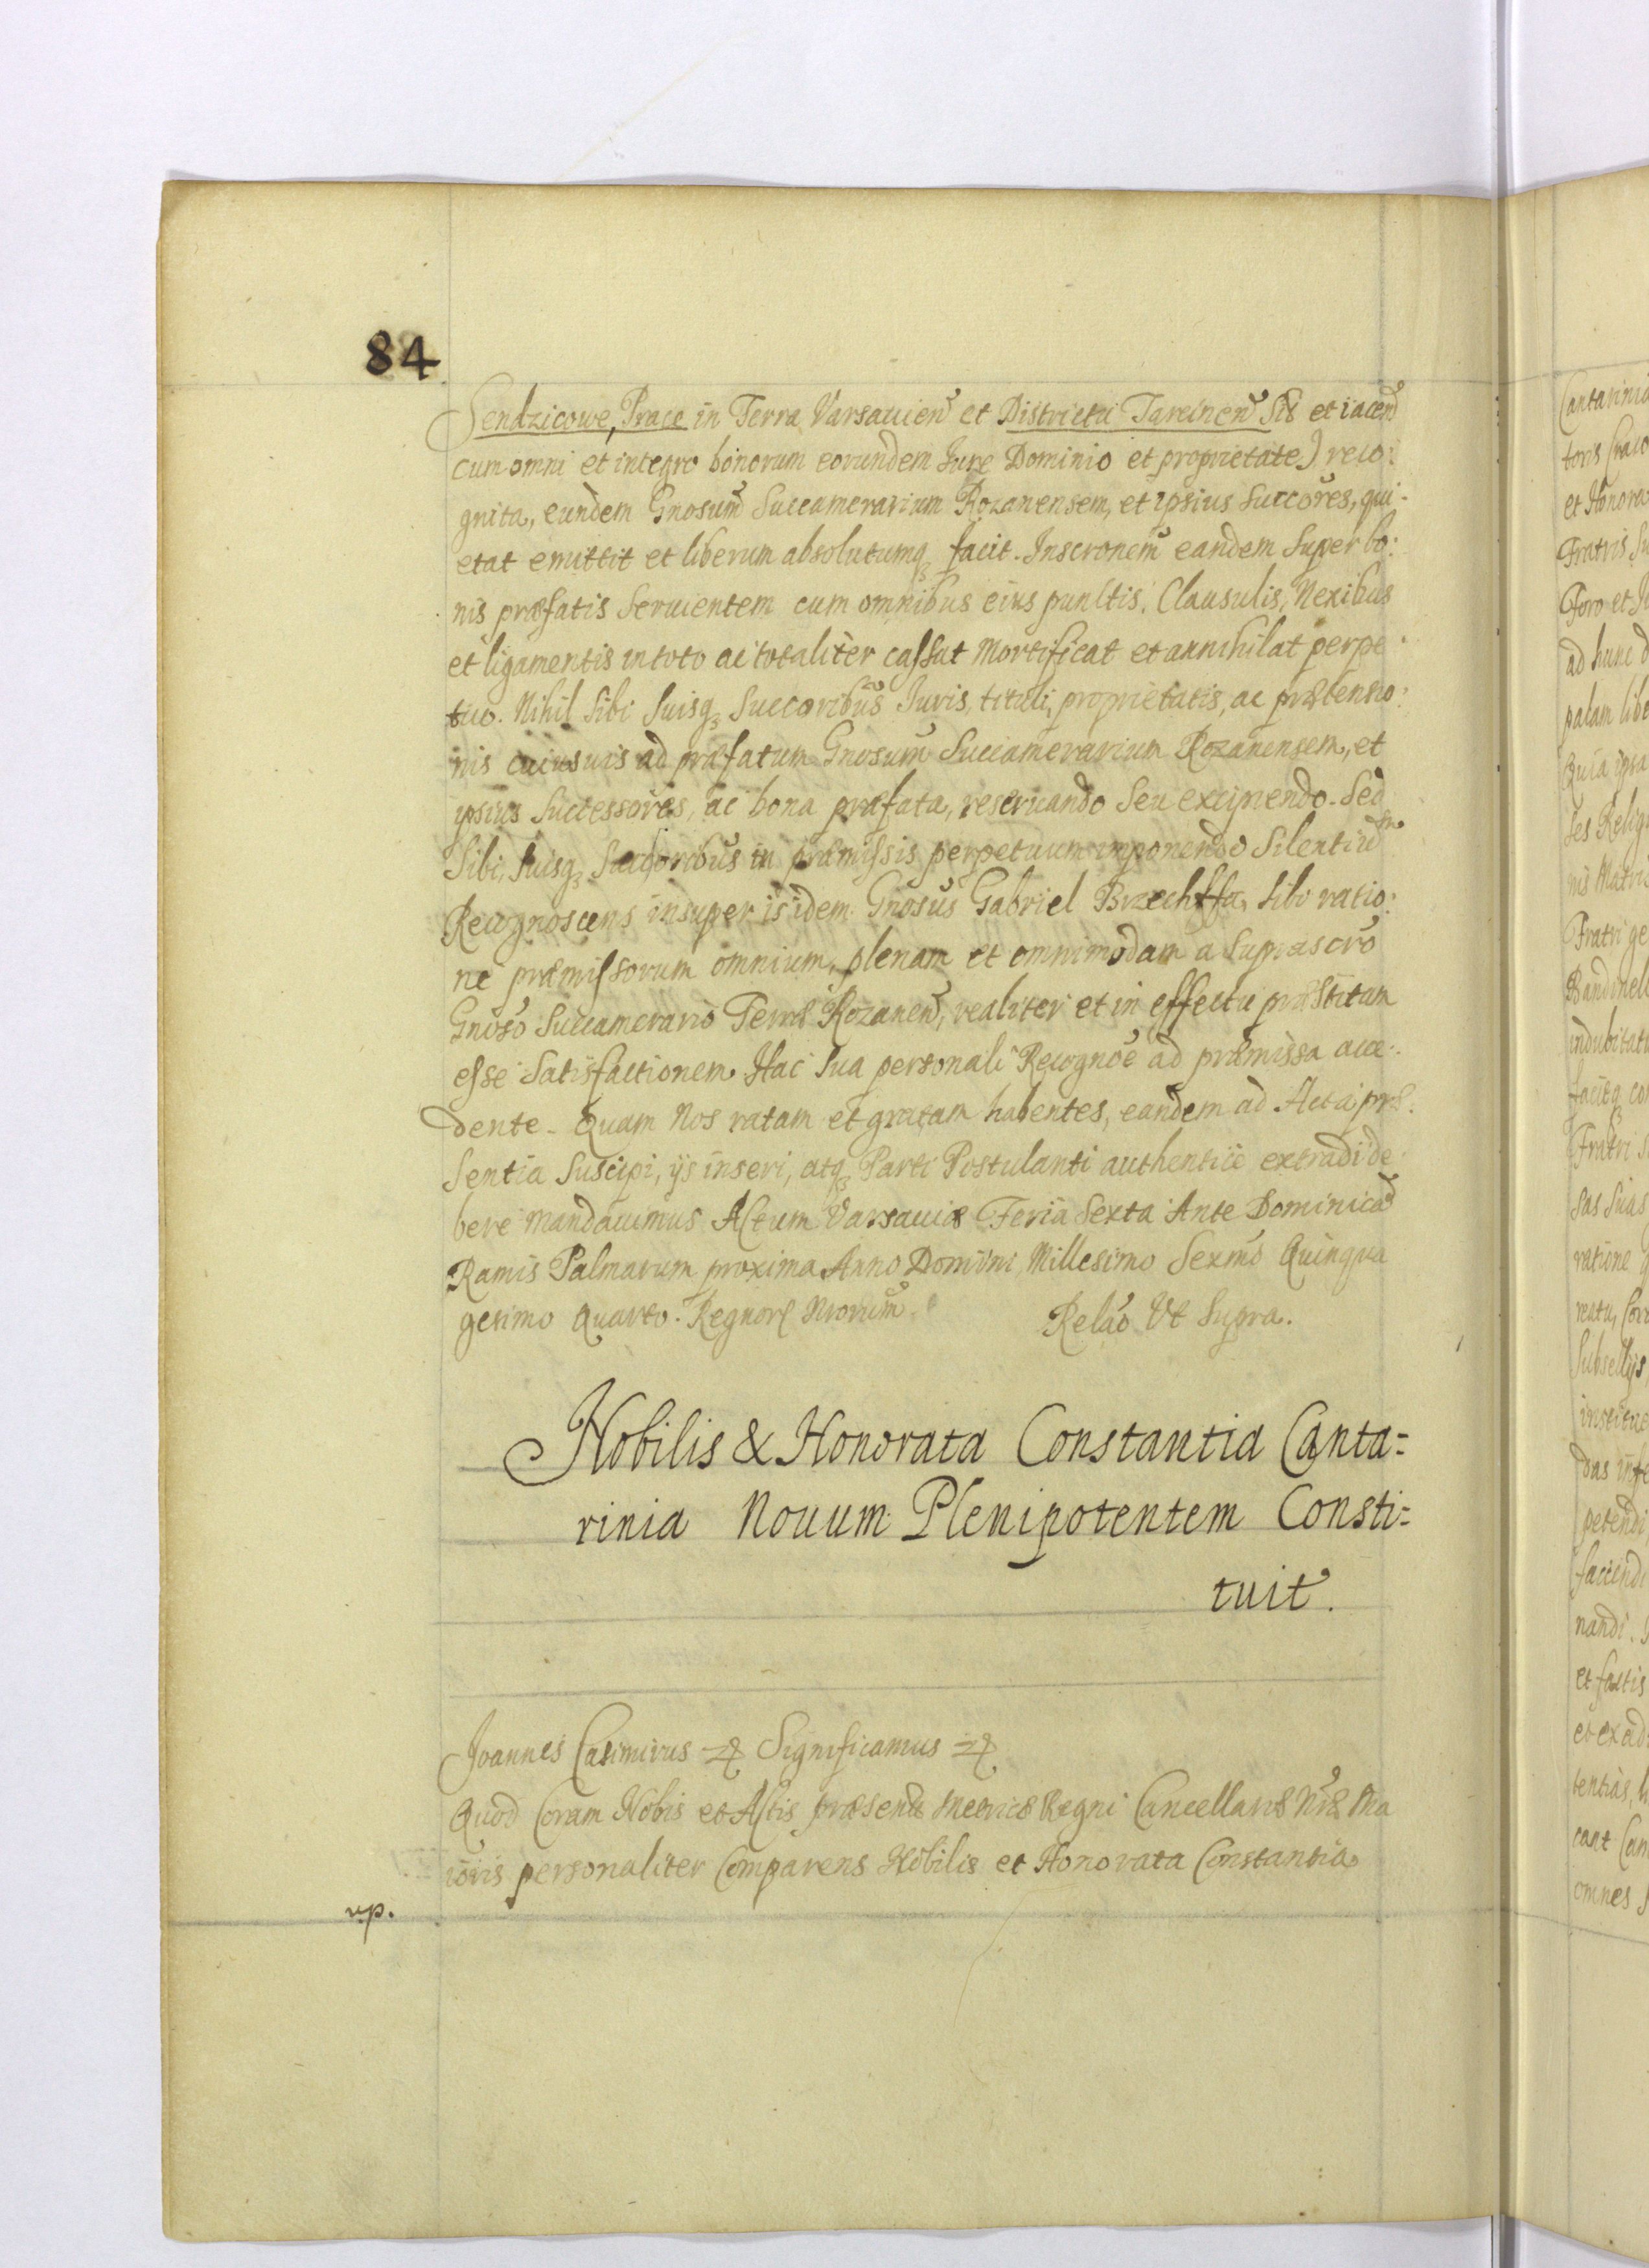 84
Sendzicowe, Prace in Terra Varsauien̄ et Districtu Tarcinen̄ Sit et iacen̄
cum omni et integro bonorum eorundem Jure Dominio et proprietate) reco:
gnita, eundem Gnosum̄ Succamerarium Rozanensem, et ipsius Succōres, qui-
etat emittit et liberum absolutumq₃ facit. Inscronem̄ eandem Super bo:
nis præfatis Seruientem cum omnibus eius punctis, Clausulis, Nexibus
et ligamentis in toto ac totaliter cassat Mortificat et annihilat perpe-
tuo. Nihil Sibi Suisq₃ Succoribūs Juris, tituli, proprietatis, ac prætensio:
nis cuiusuis ad præfatum Gnosum̄ Succamerarium Rozanensem, et
ipsius Successores, ac bona præfata, reseruando Seu excipiendo. Sed
Sibi, Suisq₃ Succoribūs in præmissis perpetuum imponendo Silentiū
Recognoscens insuper is idem Gnosūs Gabriel Brzechffa, Sibi ratio:
ne præmissorum omnium, plenam et omnimodam a Suprascrō
Gnosō Succamerario Terræ Rozanen̄, realiter et in effectu præstitam
esse Satisfactionem Hac Sua personali Recognōe ad præmissa acce:
dente. Quam Nos ratam et gratam habentes, eandem ad Acta præ:
sentia Suscipi, ijs inseri, atq₃ Parti Postulanti authentice extradi de:
bere mandauimus. Actum Varsauiæ Feria Sexta Ante Dominicā
Ramis Palmarum proxima Anno Domini Millesimo Sexmō Quinqua
gesimo Quarto. Regnorꝭ Nrorum̄ Relāo Vt Supra.
Nobilis & Honorata Constantia Canta=
rinia Nouum Plenipotentem Consti=
tuit.
Joannes Casimirus Significamus
Quod Coram Nobis et Actis præsentꝭ Metricæ Regni Cancellariæ Nrǣ Ma
ioris personaliter Comparens Nobilis et Honorata Constantia
rp.